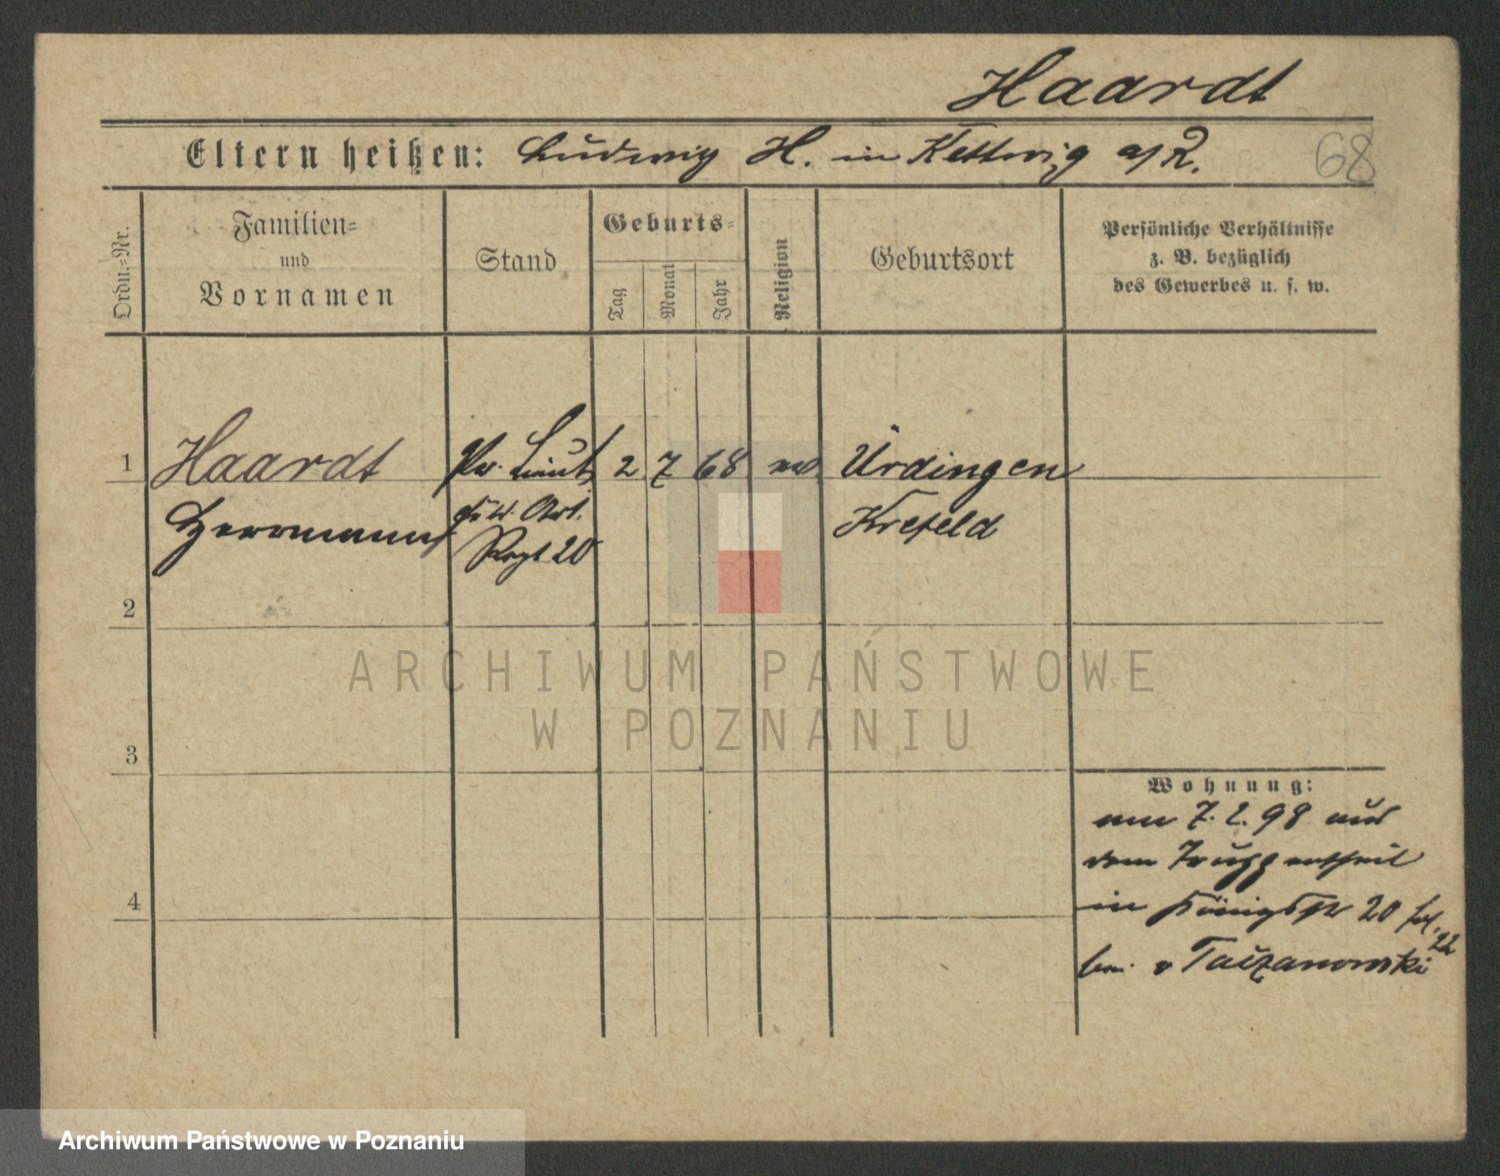 Haardt
Eltern heißen: Ludwig H. in Kettwig a/R.
68
Ordn.-Nr.
Familien-
und
Vornamen
Stand
Geburts-
Tag
Monat
Jahr
Religion
Geburtsort
Persönliche Verhältnisse
z. B. bezüglich
des Gewerbes u. s. w.
1 Haardt Pr. Lieut. 2 7 68 ev. Ürdingen
Herrmann Art. Krefeld
Regt 20
2
3
4
Wohnung:
am 7. 2. 98 aus
dem Truppentheil
in Königstr 20 bei
22
v Taczanowski
ARCHIWUM PAŃSTWOWE
W POZNANIU
Archiwum Państwowe w Poznaniu